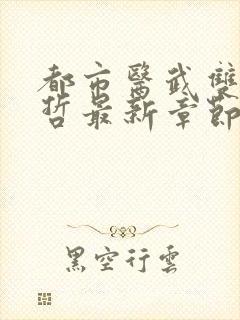 都市醫武雙
哲最新章節
黑空行雲